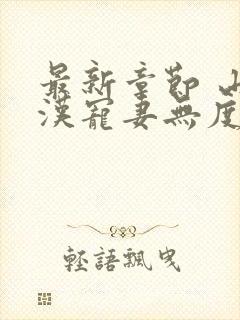 最新章節 山
漢寵妻無度
輕語飄曳